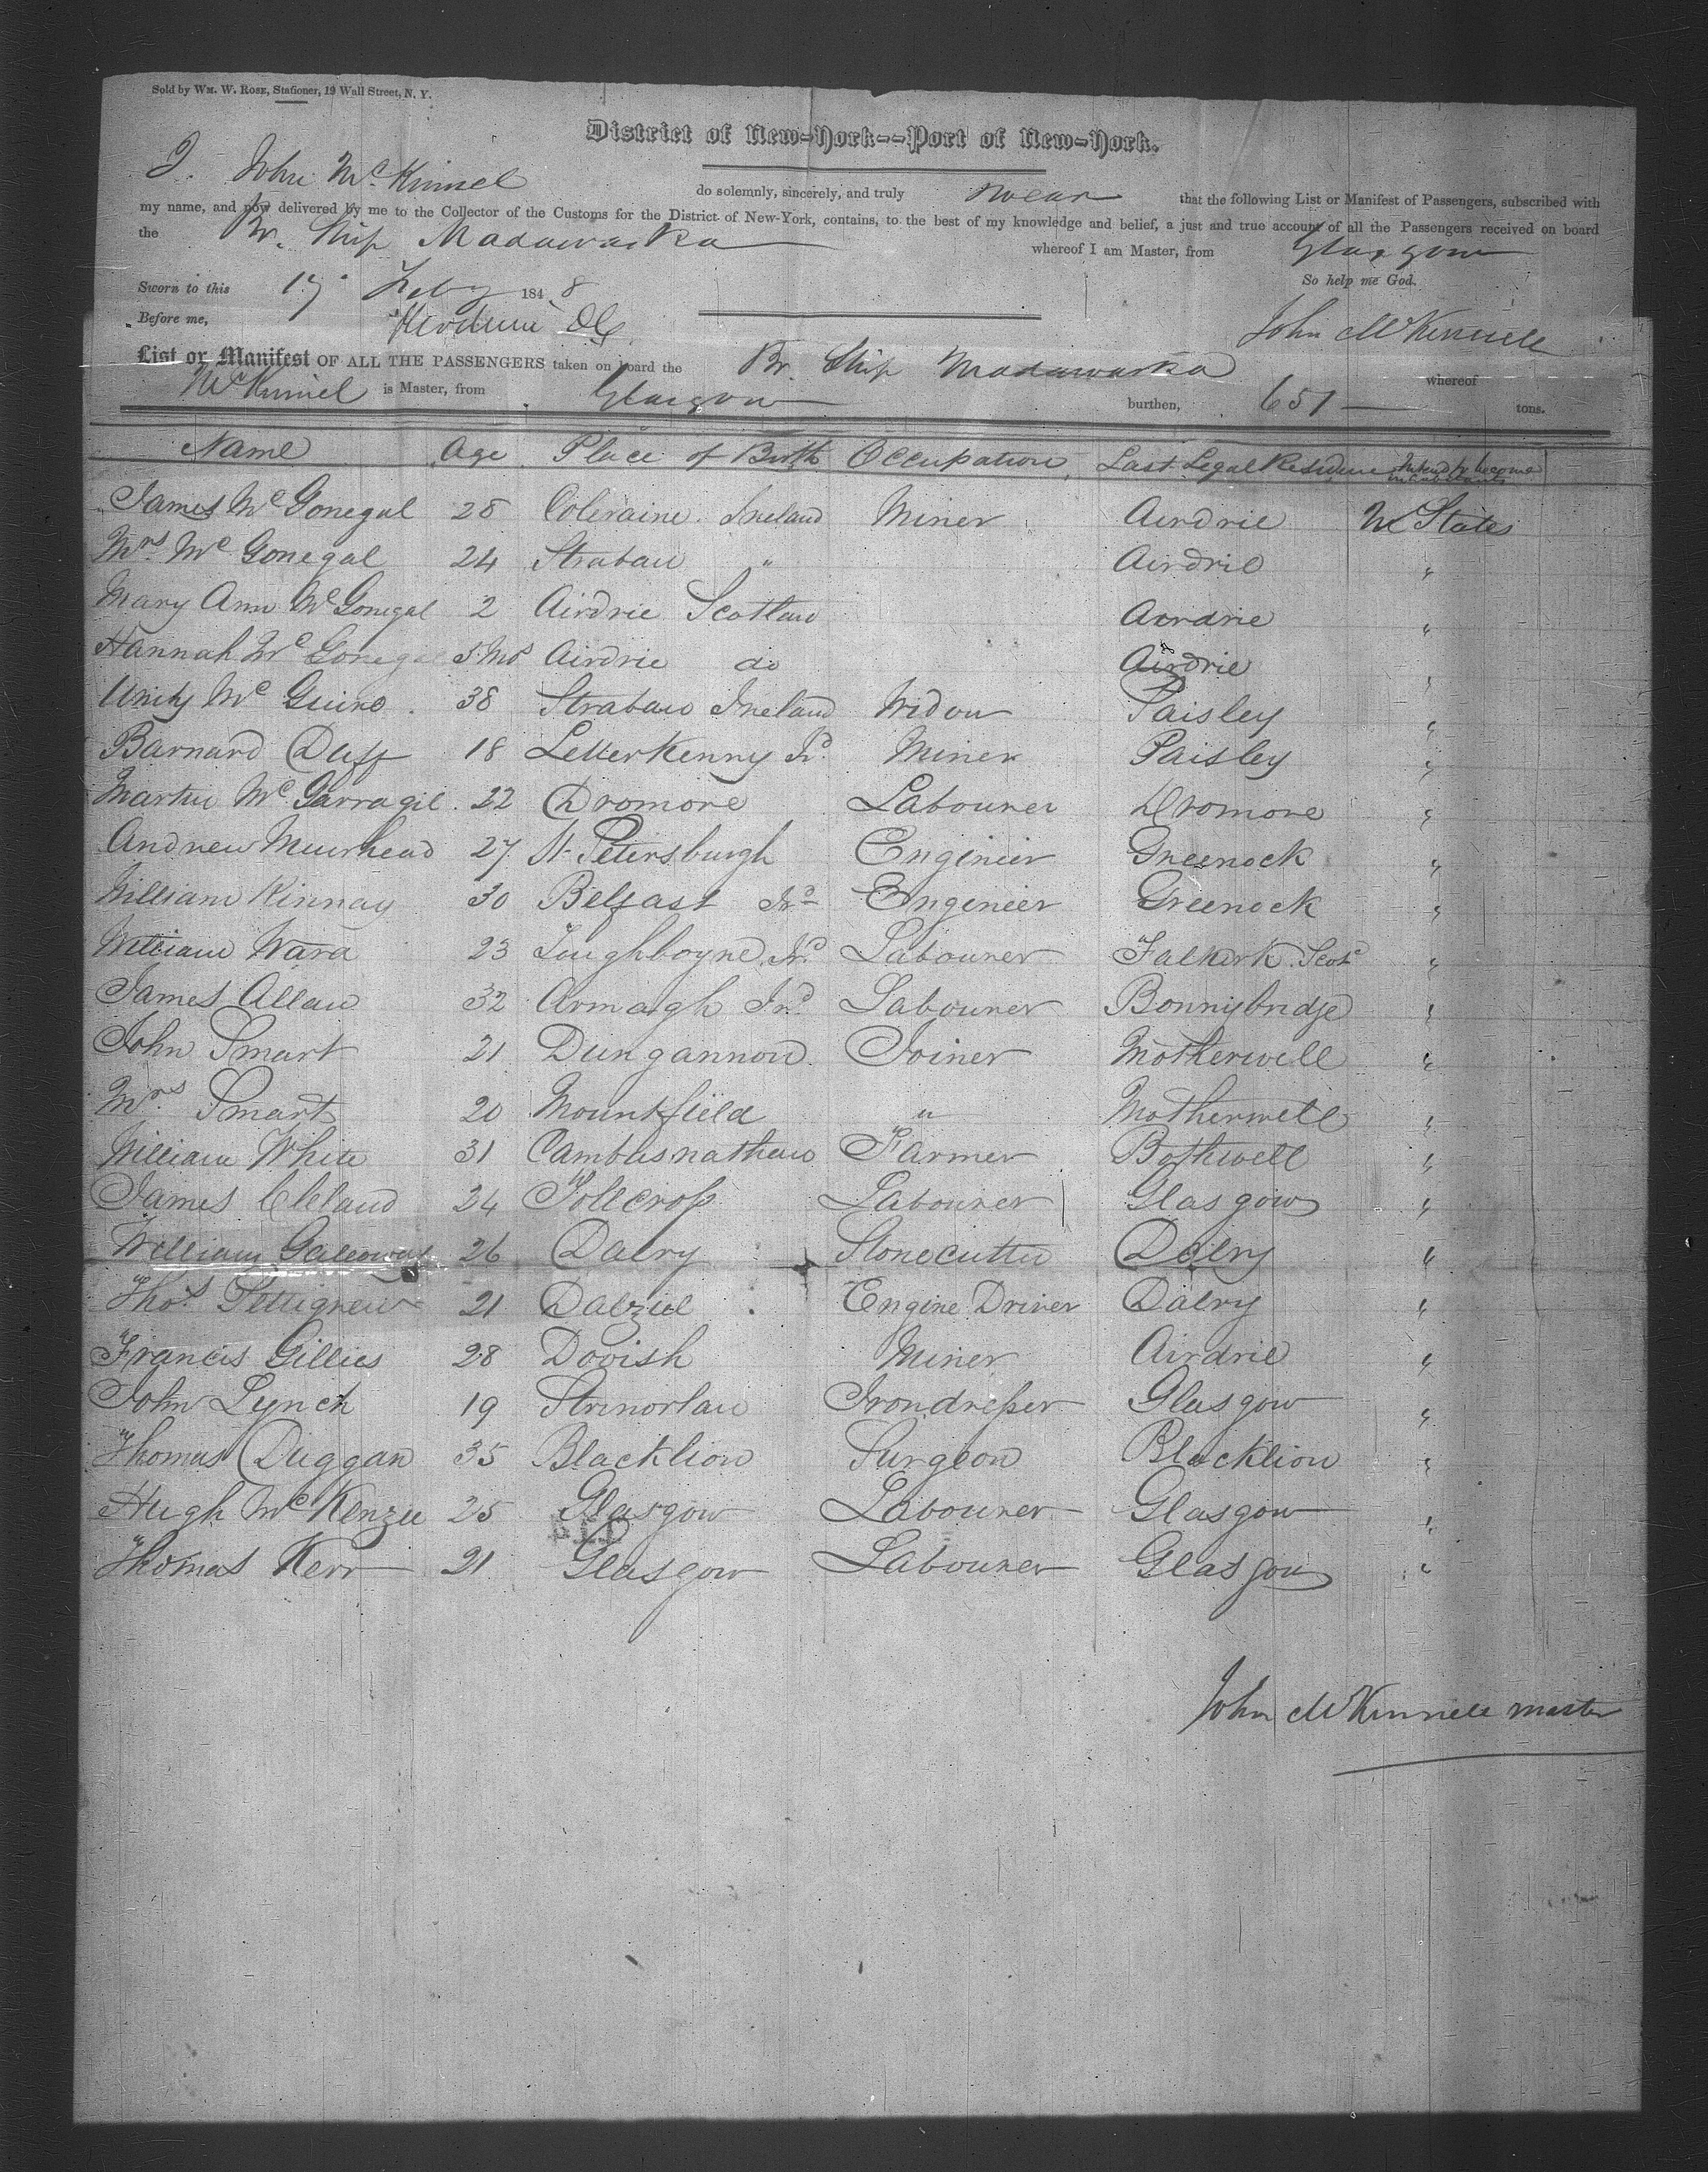 Sold by Wm. W. Rose, Stationer, 19 Wall Street, N. Y.
District of New-York--Port of New-York.
I. John McKinnel do solemnly, sincerely, and truly swear that the following List or Manifest of Passengers, subscribed with
my name, and now delivered by me to the Collector of the Customs for the District of New-York, contains, to the best of my knowledge and belief, a just and true account of all the Passengers received on board
the Br. Ship Madawaska whereof I am Master, from Glasgow
Sworn to this 17 Feby 1848 So help me God.
Before me, John McKinnell
List or Manifest OF ALL THE PASSENGERS taken on board the Br. Ship Madawaska whereof
McKinnel is Master, from Glasgow burthen, 651 tons.
Name Age Place of Birth Occupation Last Legal Residence Intend to become inhabitants
James McGonegal 28 Coleraine Ireland Miner Airdrie U States
Mrs. McGonegal 24 Straban " Airdrie "
Mary Ann McGonegal 2 Airdrie Scotland Airdrie "
Hannah McGonegal 5 Mos Airdrie do Airdrie "
Unity McGuire 38 Straban Ireland Widow Paisley "
Barnard Duff 18 Letterkenny Ird. Miner Paisley "
Martin McGarragil 22 Dromore Labourer Dromore "
Andrew Muirhead 27 St Petersburgh Engineer Greenock "
William Kinnay 30 Belfast Ird Engineer Greenock "
William Ward 23 Loughboyne Ird. Labourer Falkirk Scotd "
James Allan 32 Armagh Ird. Labourer Bonnybridge "
John Smart 21 Dungannon Joiner Motherwell "
Mrs. Smart 20 Mountfield " Motherwell "
William White 31 Cambusnathan Farmer Bothwell "
James Cleland 24 Tollcross Labourer Glasgow "
William Galloway 26 Dalry Stonecutter Dalry "
Thos. Pettigrew 21 Dalziel Engine Driver Dalry "
Francis Gillies 28 Dovish Miner Airdrie "
John Lynch 19 Strinorlan Irondresser Glasgow "
Thomas Duggan 35 Blacklion Surgeon Blacklion "
Hugh McKenzie 25 Glasgow Labourer Glasgow "
Thomas Kerr 21 Glasgow Labourer Glasgow "
John McKinnell master